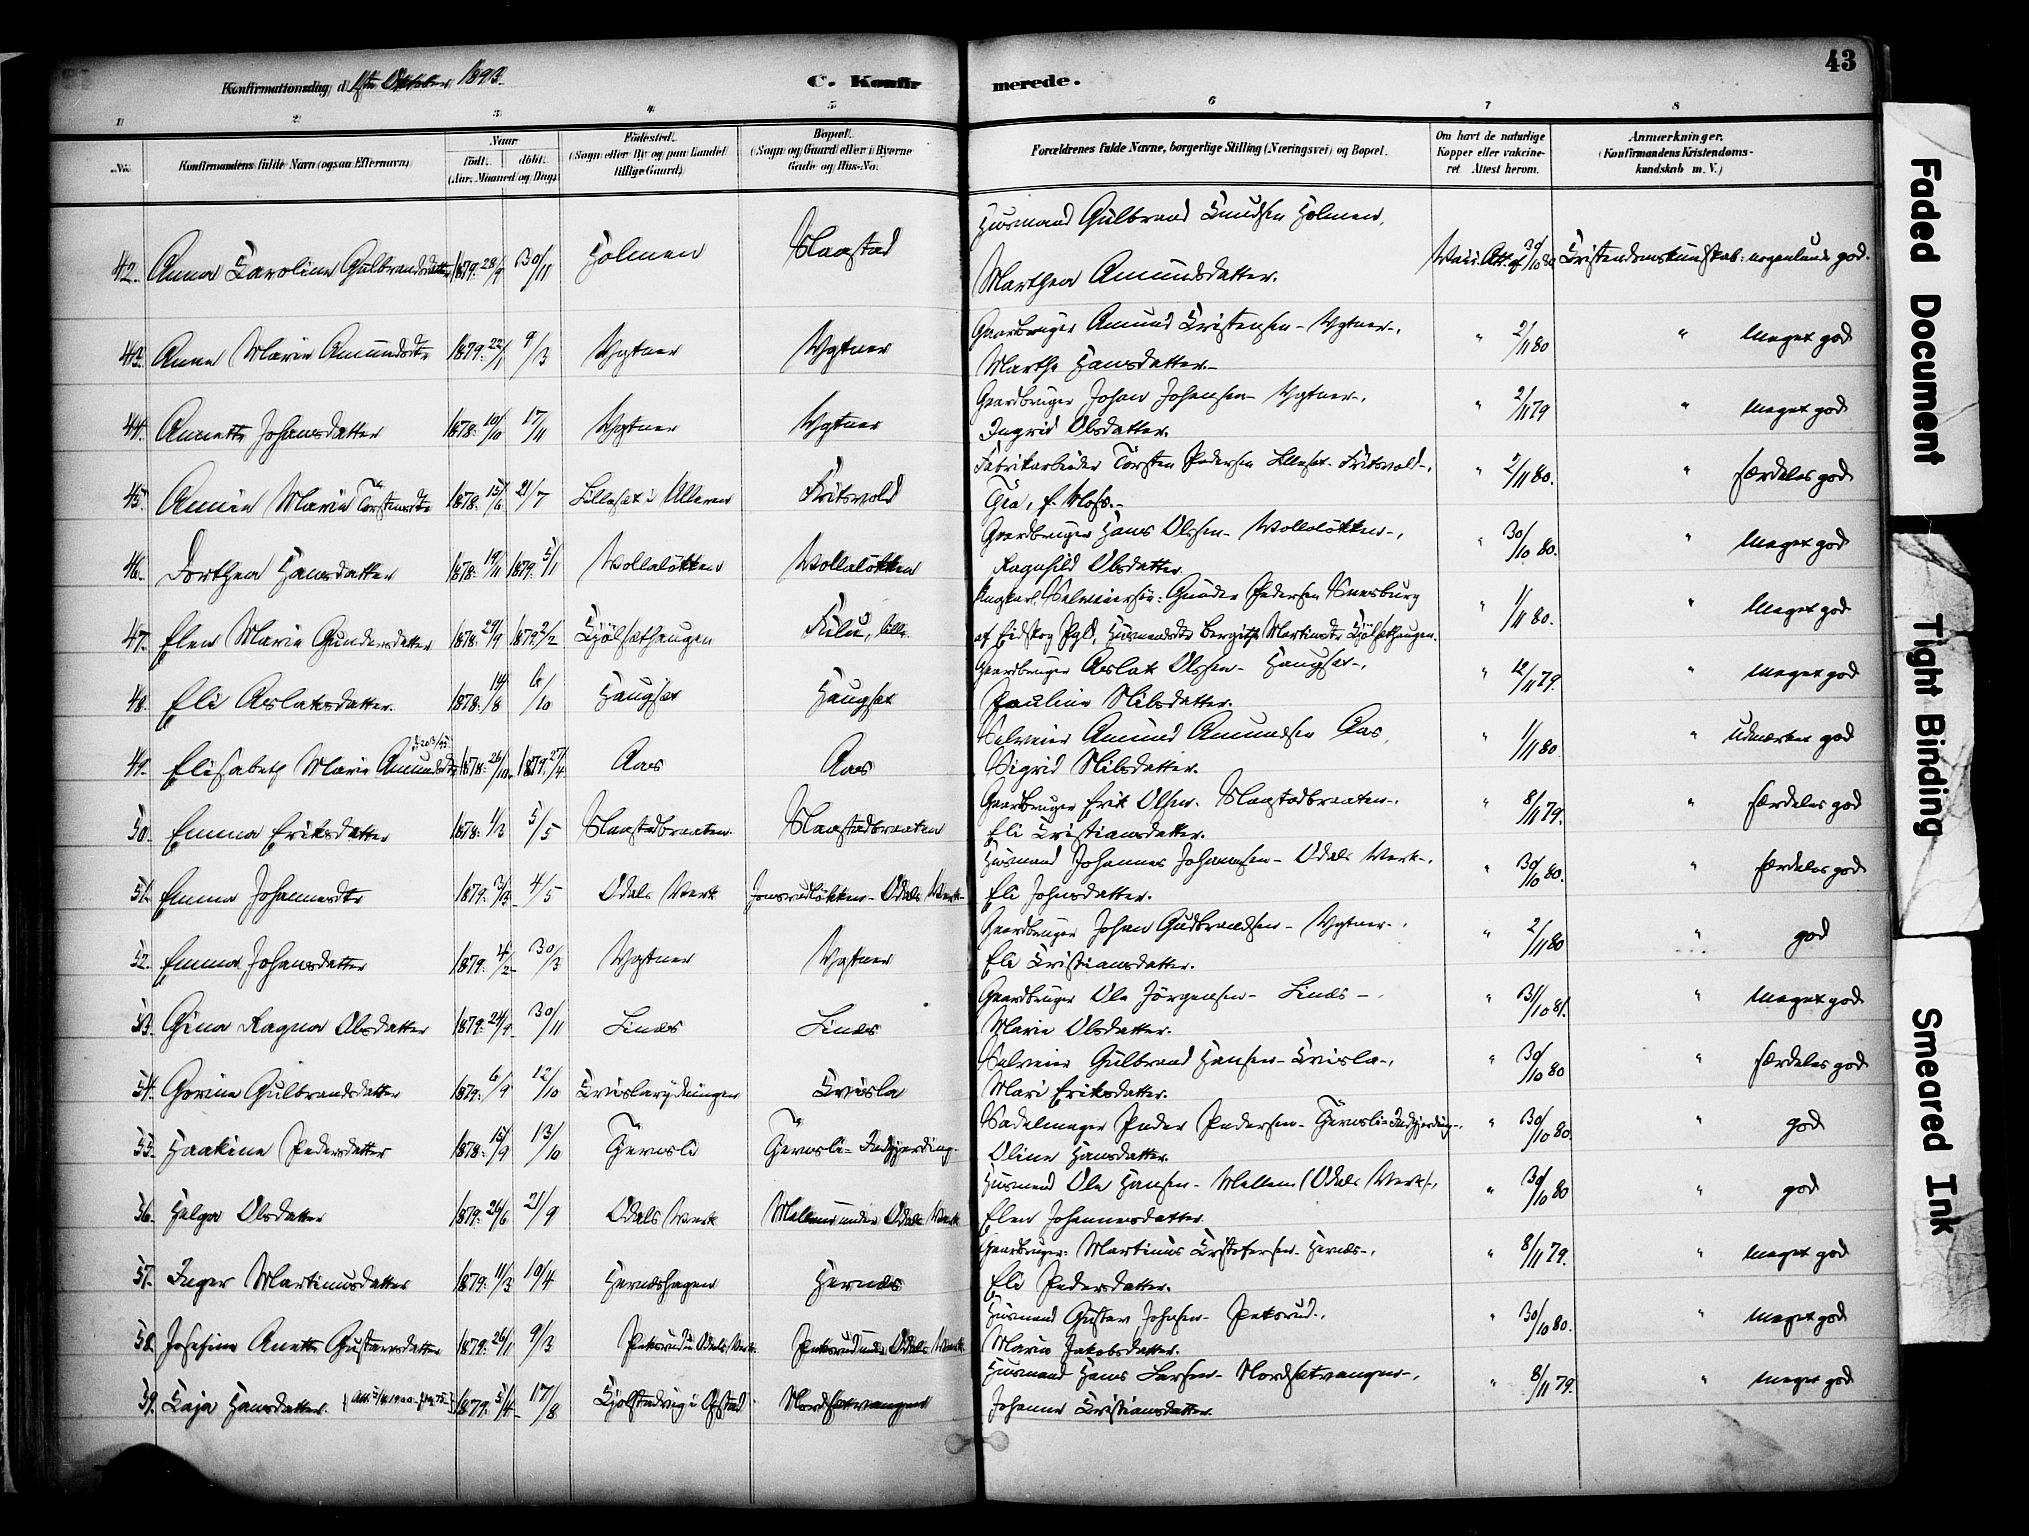 43
Konfirmationsdag d. 1ste Oktober 1893.
C. Konfir merede.
1 2 3 4 5 6 7 8
No. Konfirmandens fulde Navn (ogsaa Efternavn) Naar født. døbt. (Aar, Maaned og Dag) Fødested. (Sogn eller By og paa Landet tillige Gaard) Bopæl. (Sogn og Gaard) eller i Byerne Gade og Hus-No. Forældrenes fulde Navne, borgerlige Stilling (Næringsvei) og Bopæl. Om havt de naturlige Kopper eller vakcineret. Attest herom. Anmærkninger. (Konfirmandens Kristendomskundskab m. V.)
42. Anna Karoline Gulbrandsdatter 1879. 28/9 30/11 Holmen Slaastad Husmand Gulbrand Knudsen Holmen, Marthea Amundsdatter. Att. af 30/10 80 Kristendomskundskab: nogenlunde god.
43. Anne Marie Amundsdtr 1879. 22/1 9/3 Ygtner Ygtner Gaardbruger Amund Kristensen - Ygtner -, Marthe Hansdatter. " 2/11 80 " Meget god
44. Annette Johansdatter 1878. 10/10 17/11 Ygtner Ygtner Gaardbruger Johan Johansen - Ygtner -, Ingrid Olsdatter. " 2/11 79 " Meget god
45. Annie Marie Torstensdtr 1878. 15/6 21/7 Lillesæt i Ulleren Fritsvold Fabrikarbeider Torsten Pedersen Lillesæt - Fritsvold -, Gea, f. Moss. " 2/11 80. " særdeles god
46. Dorthea Hansdatter 1878. 19/11 1879. 5/1 Vollaløkken Vollaløkken Gaardbruger Hans Olsen - Vollaløkken -, Ragnhild Olsdatter. " 30/10 80. " Meget god
47. Elen Marie Gundersdatter 1878. 29/9 1879. 2/2 Kjølsæthaugen Lille. Ungkarl, Gunder Pedersen af Eidskog Pgld, Husmandsdtr Bergithe Martinsdtr Kjølsæthaugen. " 1/11 80. " Meget god
48. Eli Aslaksdatter. 1878. 14/8 6/10 Haugsæt Haugsæt Gaardbruger Aslak Olsen - Haugsæt -, Pauline Nilsdatter. " 12/11 79. " Meget god
49. Elisabeth Marie Amundsdtr 1878. 26/10 1879. 27/4 Aas Aas Selveier Amund Amundsen Aas, Sigrid Nilsdatter. " 1/11 80 " Udmærket god
50. Emma Eriksdatter 1878. 1/2 5/5 Slaastadbraaten. Slaastadbraaten Gaardbruger Erik Olsen - Slaastadbraaten -, Eli Kristiansdatter. " 8/11 79. " særdeles god
51. Emma Johannesdtr 1879. 3/3 4/5 Odals Verk Jonsrudløkken - Odals Verk - Husmand Johannes Johannesen - Odals Verk -, Eli Johnsdatter. " 30/10 80. " særdeles god
52. Emma Johansdatter 1879. 4/2 30/3 Ygtner Ygtner Gaardbruger Johan Gudbrandsen - Ygtner -, Eli Kristiansdatter. " 2/11 80 " god
53. Gina Ragna Olsdatter 1879. 24/9 30/11 Linæs Linæs Gaardbruger Ole Jørgensen - Linæs -, Marie Olsdatter. " 31/10 81. " Meget god
54. Gorine Gulbrandsdatter 1879. 6/9 12/10 Kvislarydningen Kvisla Selveier Gulbrand Hansen - Kvisla -, Mari Eriksdatter. " 30/10 80 " særdeles god
55. Haakine Pedersdatter 1878. 15/9 13/10 Gjernsli Gjernsli - Indgjerding. Sadelmager Peder Pedersen - Gjernsli - Indgjerding -, Oline Hansdatter. " 30/10 80. " god
56. Helga Olsdatter 1879. 26/6 21/9 Odals Verk Mellem under Odals Verk Husmand Ole Hansen - Mellem (Odals Verk) -, Elen Johannesdatter. " 30/10 80 " god
57. Inger Martinusdatter 1879. 11/3 10/4 Hernæshagen Hernæs Gaardbruger: Martinus Kristofersen - Hernæs -, Eli Pedersdatter. " 8/11 79. " Meget god
58. Josefine Anette Gustavsdatter 1879. 26/1 9/3 Peksrud u. Odals Verk Peksrud under Odals Verk Husmand Gustav Johnsen - Peksrud -, Marie Jakobsdatter. " 30/10 80. " Meget god
59. Kaja Hansdatter. 1879. 5/4 17/8 Nordsætvangen Husmand Hans Larsen - Nordsætvangen -, Johanne Kristiansdatter. " 8/11 79. " Meget god
Faded Document
Tight Binding
Smeared Ink